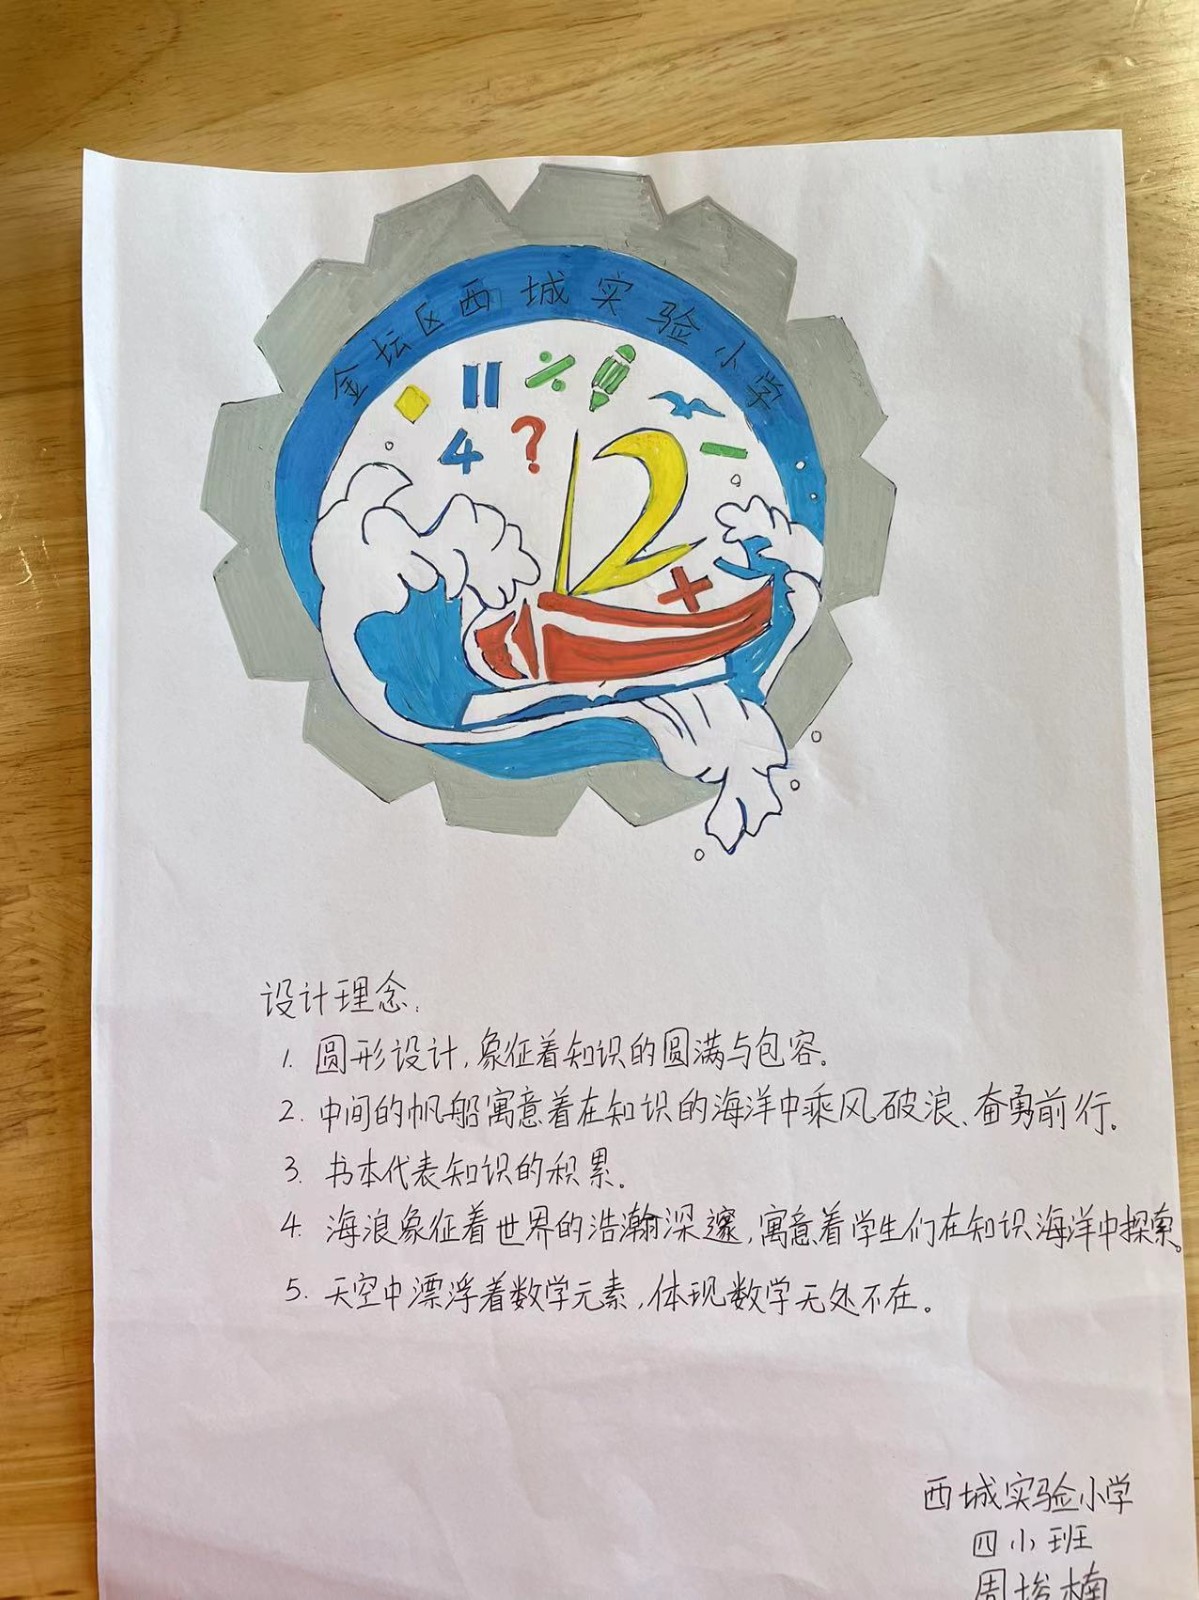 金坛区西城实验小学
÷
4 ?
12
+
设计理念:
1. 圆形设计,象征着知识的圆满与包容。
2. 中间的帆船寓意着在知识的海洋中乘风破浪、奋勇前行。
3. 书本代表知识的积累。
4. 海浪象征着世界的浩瀚深邃,寓意着学生们在知识海洋中探索。
5. 天空中漂浮着数学元素,体现数学无处不在。
西城实验小学
四小班
周 楠